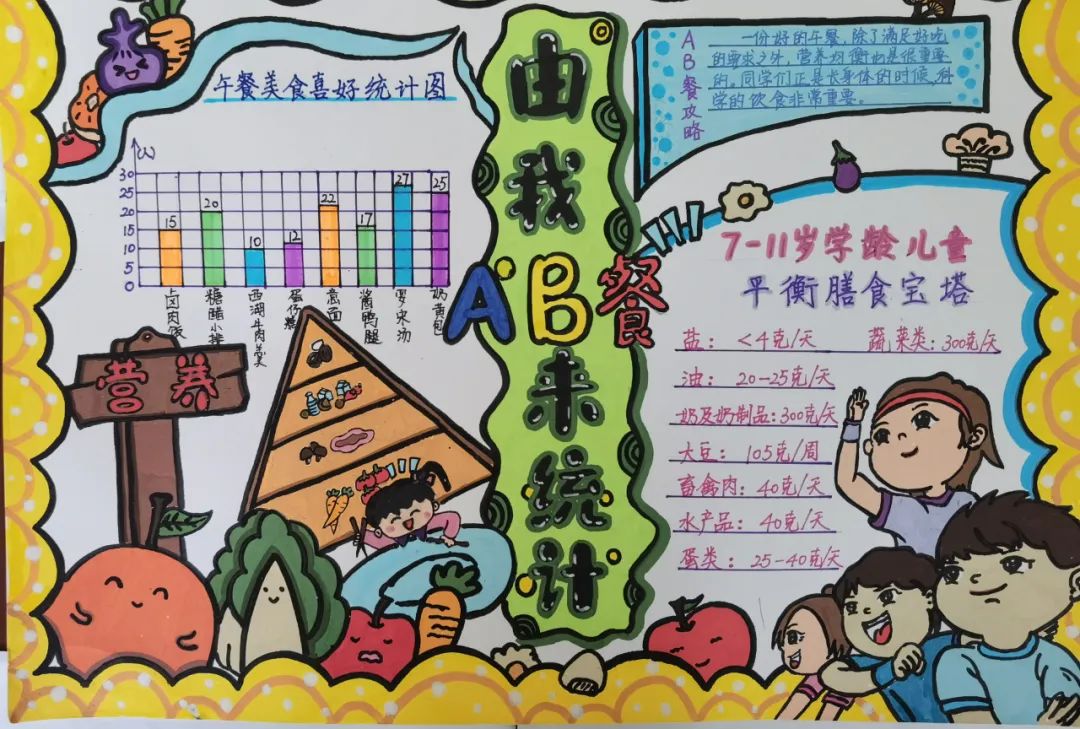 午餐美食喜好统计图
(人)
30
25
20
15
10
5
0
15
20
10
12
22
17
27
25
卤肉饭
糖醋小排
西湖牛肉羹
蛋仔糕
意面
酱鸭腿
罗宋汤
奶黄包
营养
由我
AB餐
来统计
AB餐攻略
一份好的午餐,除了满足好吃
的要求之外,营养均衡也是很重要
的。同学们正是长身体的时候,科
学的饮食非常重要。
7-11岁学龄儿童
平衡膳食宝塔
盐:<4克/天
蔬菜类:300克/天
油:20-25克/天
奶及奶制品:300克/天
大豆:105克/周
畜禽肉:40克/天
水产品:40克/天
蛋类:25-40克/天